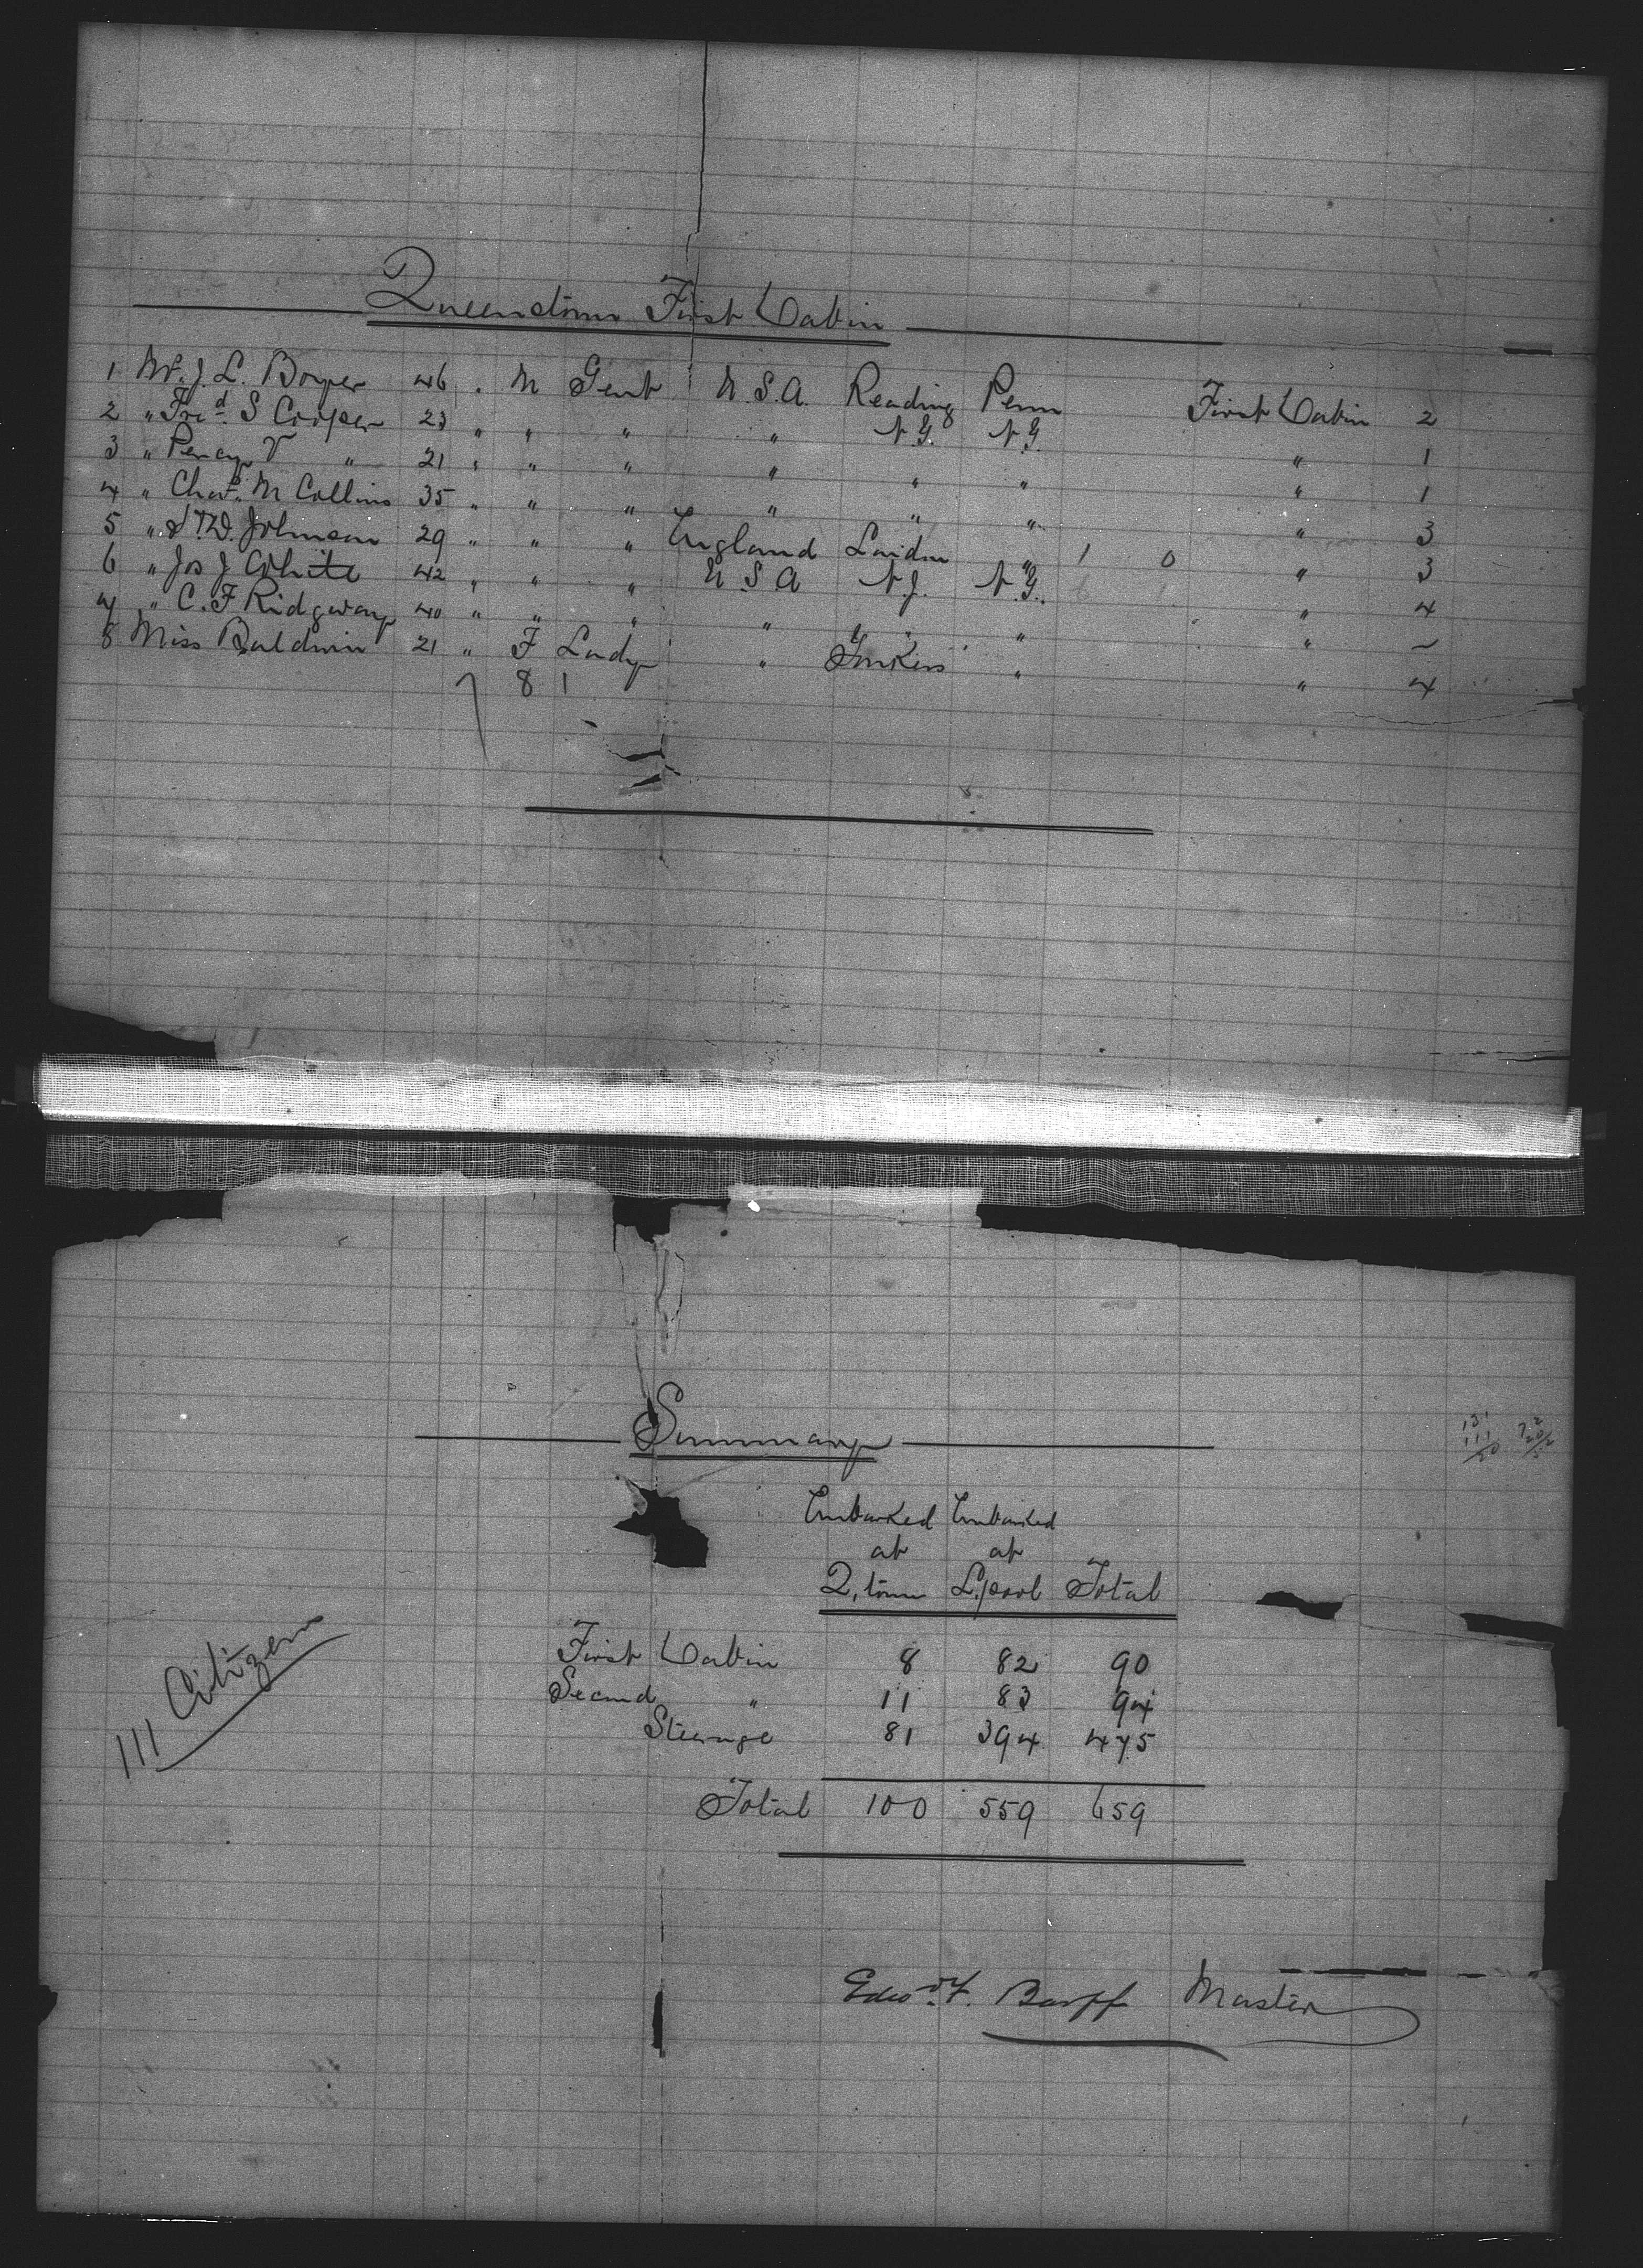 Queenstown First Cabin
1 Mr. J. L. Boyer 46 " M Gent U.S.A. Reading Penn First Cabin 2
2 " Fredd S Cooper 23 " " " " N.Y. N.Y. " 1
3 " Percy V " 21 " " " " " " " 1
4 " Chas. M Collins 35 " " " " " " " 3
5 " Johnson 29 " " " England London " 1 0 " 3
6 " Jos J White 42 " " " U S A N.J. N.Y. " 4
7 " C. F Ridgway 40 " " " " " " " ~
8 Miss Baldwin 21 " F Lady " Yonkers " " 4
7 8 1
Summary
Embarked Embarked
at at
Q,town L.pool Total
First Cabin 8 82 90
Second " 11 83 94
Steerage 81 394 475
Total 100 559 659
111 Citizens
Edwd. F. Barff Master